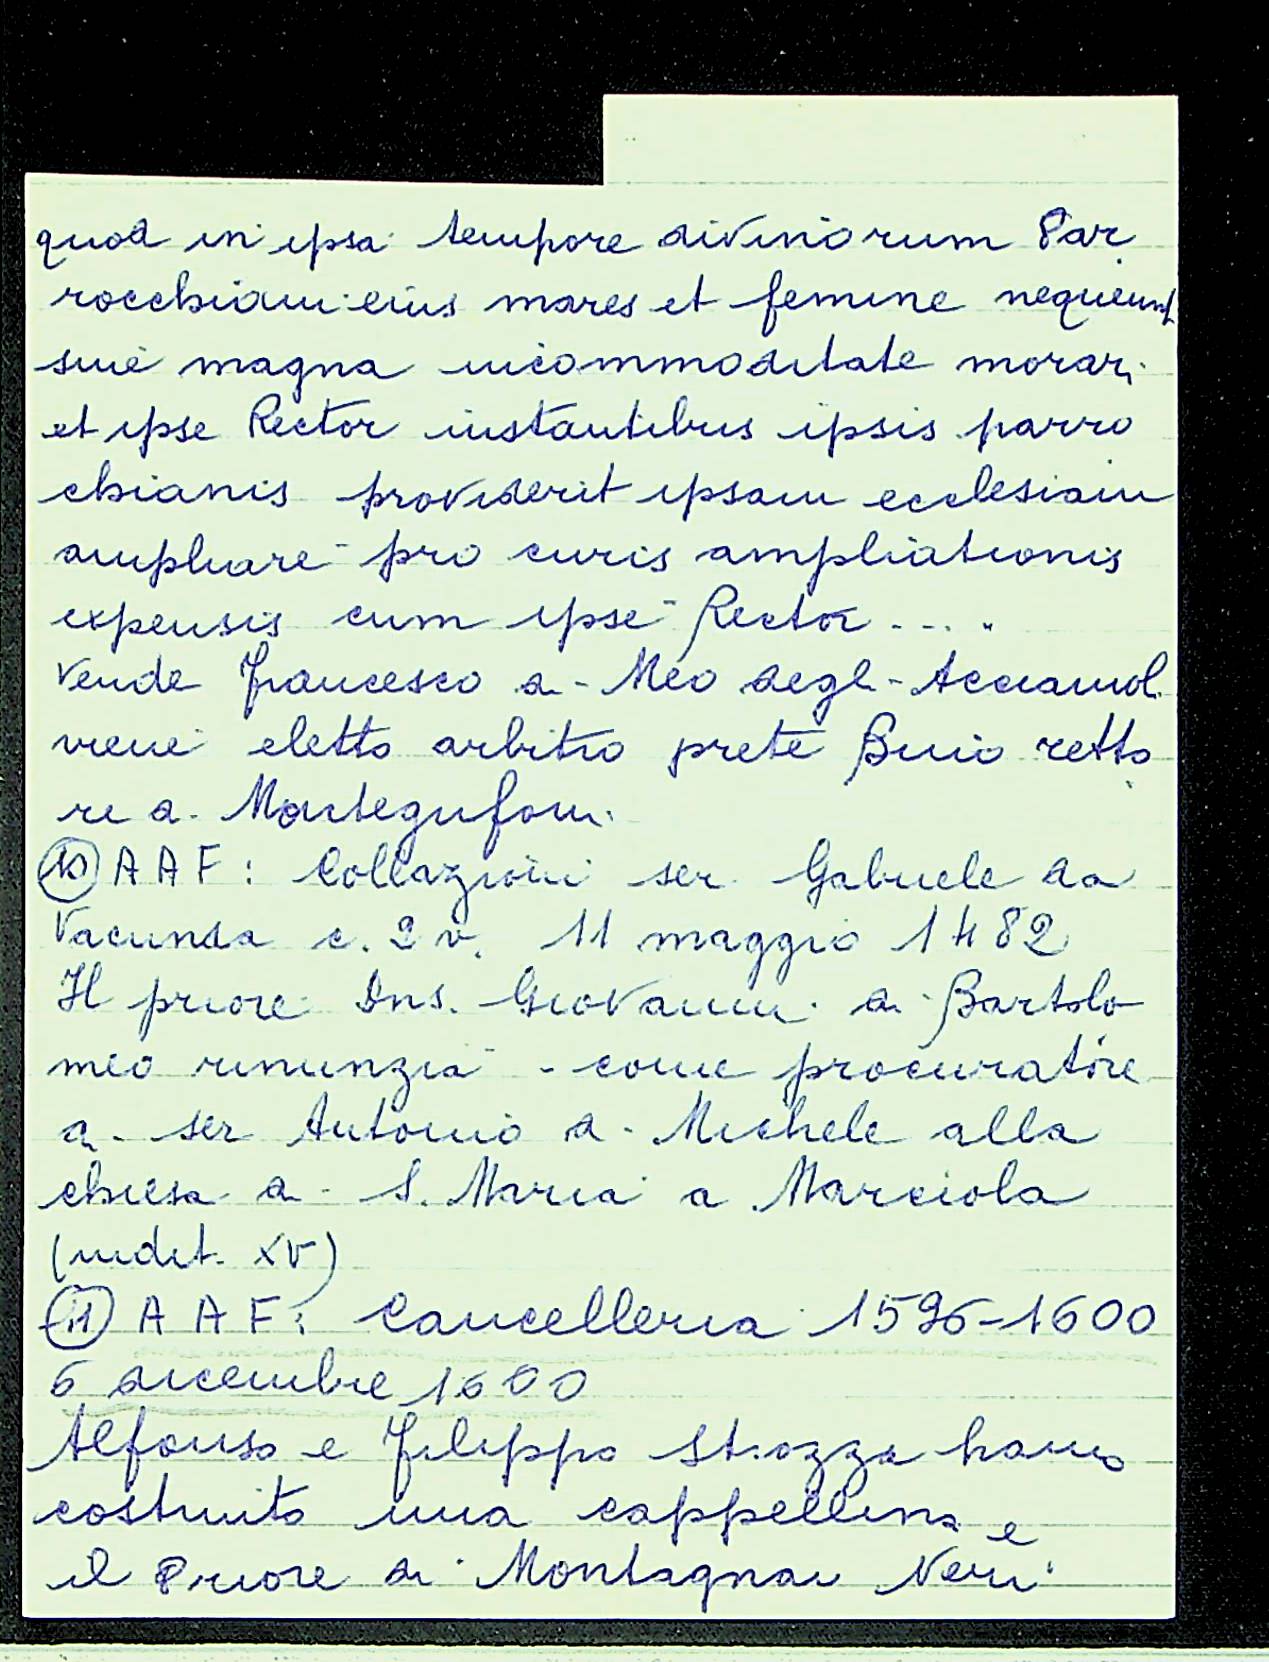 quod in ipsa tempore divinorum Par
rocchiani eius mares et femine nequeunt
sine magna incommoditate morari
et ipse Rector instantibus ipsis parro
chianis providerit ipsam ecclesiam
ampliare pro cuius ampliationis
expensis cum ipse Rector ....
Vende Francesco di Meo degli Acciaiuoli
viene eletto arbitro prete Buio retto
re a Montegufoni.
(10) AAF: Collazioni ser Gabriele da
Vacunda c. 2 v. 11 maggio 1482
Il priore Dns. Giovanni di Bartolo
meo rinunzia - come procuratore
di ser Antonio di Michele alla
chiesa di S. Maria a Marciola
(indit. XV)
(11) AAF: Cancelleria 1596-1600
6 dicembre 1600
Alfonso e Filippo Strozza hanno
costruito una cappellina e
il Priore di Montagnai Neri